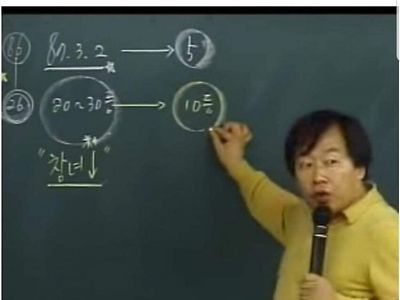 86 87.3.2 → 5
26 20~30등 → 10등
"창녀↓"